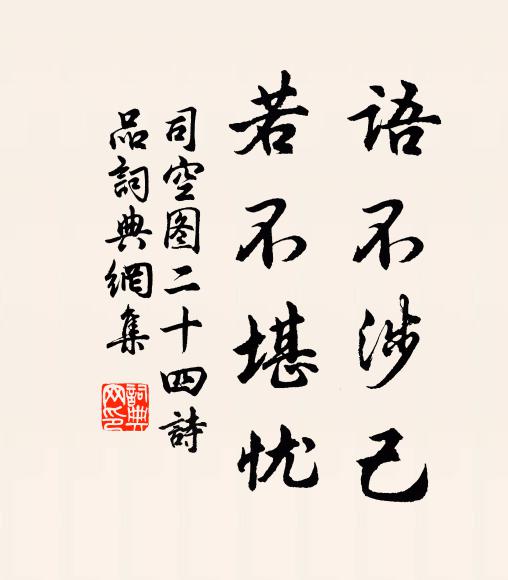 語不涉己
若不堪忧
司空图二十四詩
品詞典網集
詞典
网印